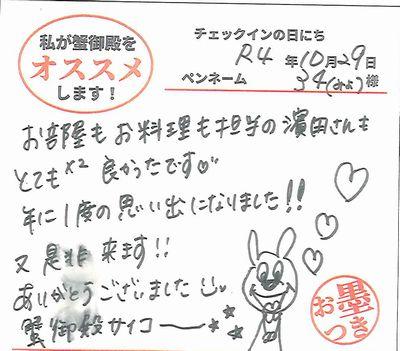 私が蟹御殿を
オススメ
します！
チェックインの日にち
R4 年 10月 29日
ペンネーム 34(みよ) 様
お部屋もお料理も担当の濱田さんも
とても×2 良かったです♡
年に1度の思い出になりました!!
又 是非 来ます!!
ありがとうございました
蟹御殿サイコー★★★
お墨つき